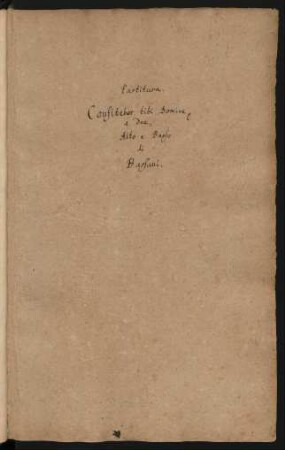 Partitura.
Confitebor tibi Domine,
a due,
Alto e Basso
di
Bassani.